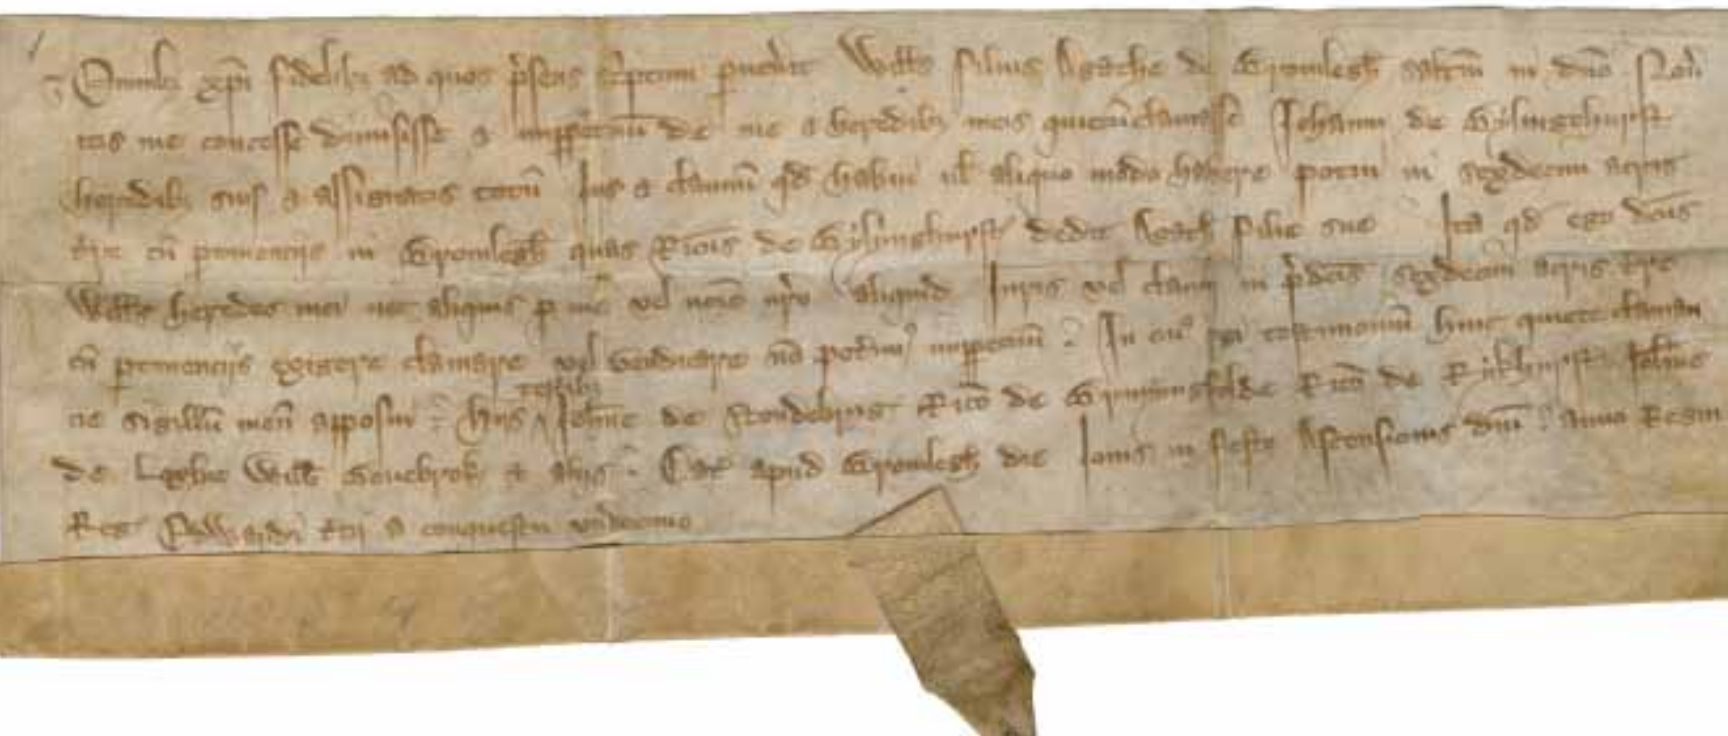 Omnib3 xp̄i fidelib3 ad quos p̄sens sc̄ptum puen̄it Wills filius Agathe de Gromlegh saltm in dno Nov̄i
tis me concesse dimisisse & inppetuū de me & heredib3 meis quietūclamasse Johanni de Gylingehurst
heredib3 suis & assignatis totū Jus & clamiū qd habui ul aliquo modo habere potui in sexdecim acris
t̄re cū ptinenciis in Gromlegh quas Ric̄us de Gylinghurst dedit Agath filie sue Ita qd ego dc̄us
Wills heredes mei nec aliquis p me vel noīe nr̄o aliquid Juris vel clamii in p̄dcis sexdecim acris t̄re
cū ptinenciis exigere clamare vel vendicare nō pot̄im9 inppetuū In cui9 rei testimoniū huic quiete claman
ne sigillū meū apposui Hiis testib3 Johne de Ric̄o de Greningefolde Ric̄o de Rykhurst Johne
de Will & aliis Dat apud Gromlegh die Jovis in festo Ascensionis dn̄i anno Regni
Reg Edwardi t̄cij a conquestu undecimo